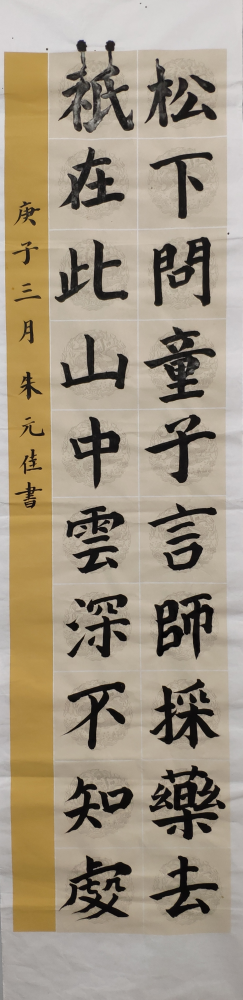 松下問童子言師採藥去
秖在此山中雲深不知處
庚子三月朱元佳書